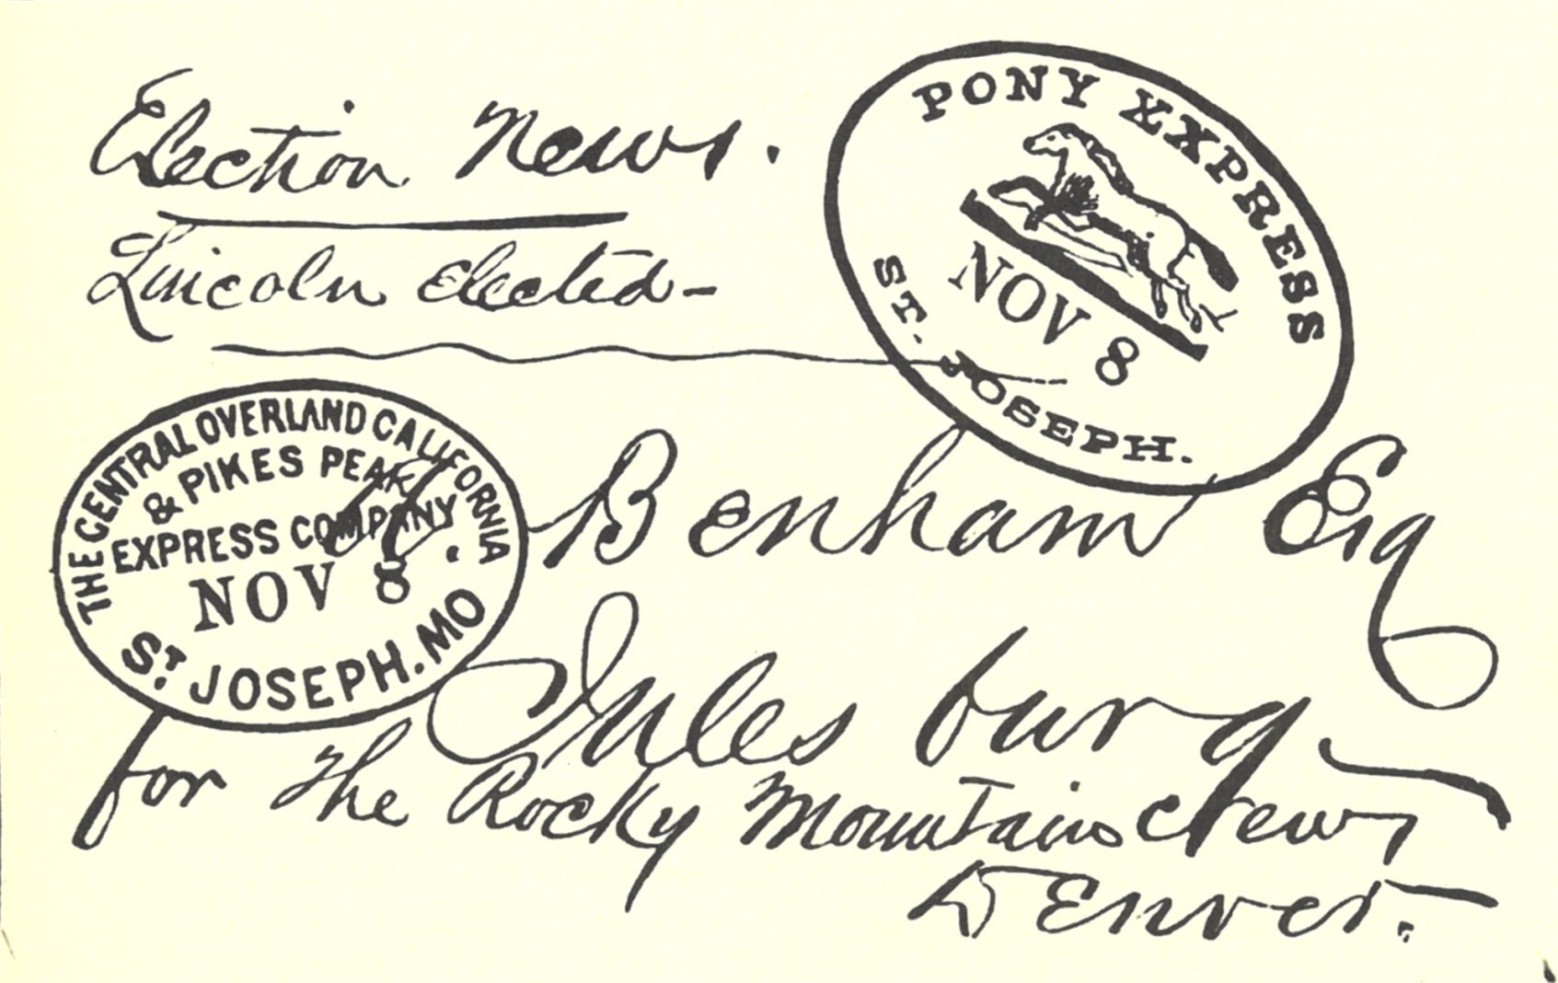 Election News.
Lincoln elected-
PONY EXPRESS
NOV 8
ST. JOSEPH.
THE CENTRAL OVERLAND CALIFORNIA
& PIKES PEAK
EXPRESS COMPANY.
NOV 8
ST. JOSEPH. MO
Benham Esq
Julesburg
for the Rocky Mountain News
Denver.